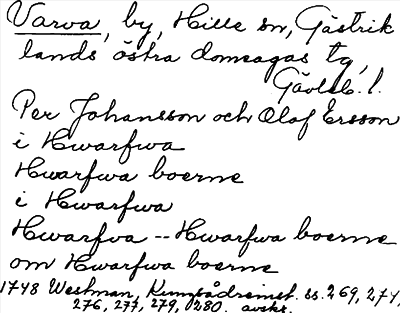 Varva, by, Hille sn, Gästrik
lands östra domsagas tg,
Gävleb. l.
Per Johansson och Olof Ersson
i Hwarfwa
Hwarfwa boerne
i Hwarfwa
Hwarfva -- Hwarfwa boerne
om Hwarfwa boerne
1748 Westman, ss. 269, 274,
276, 277, 279, 280. avskr.